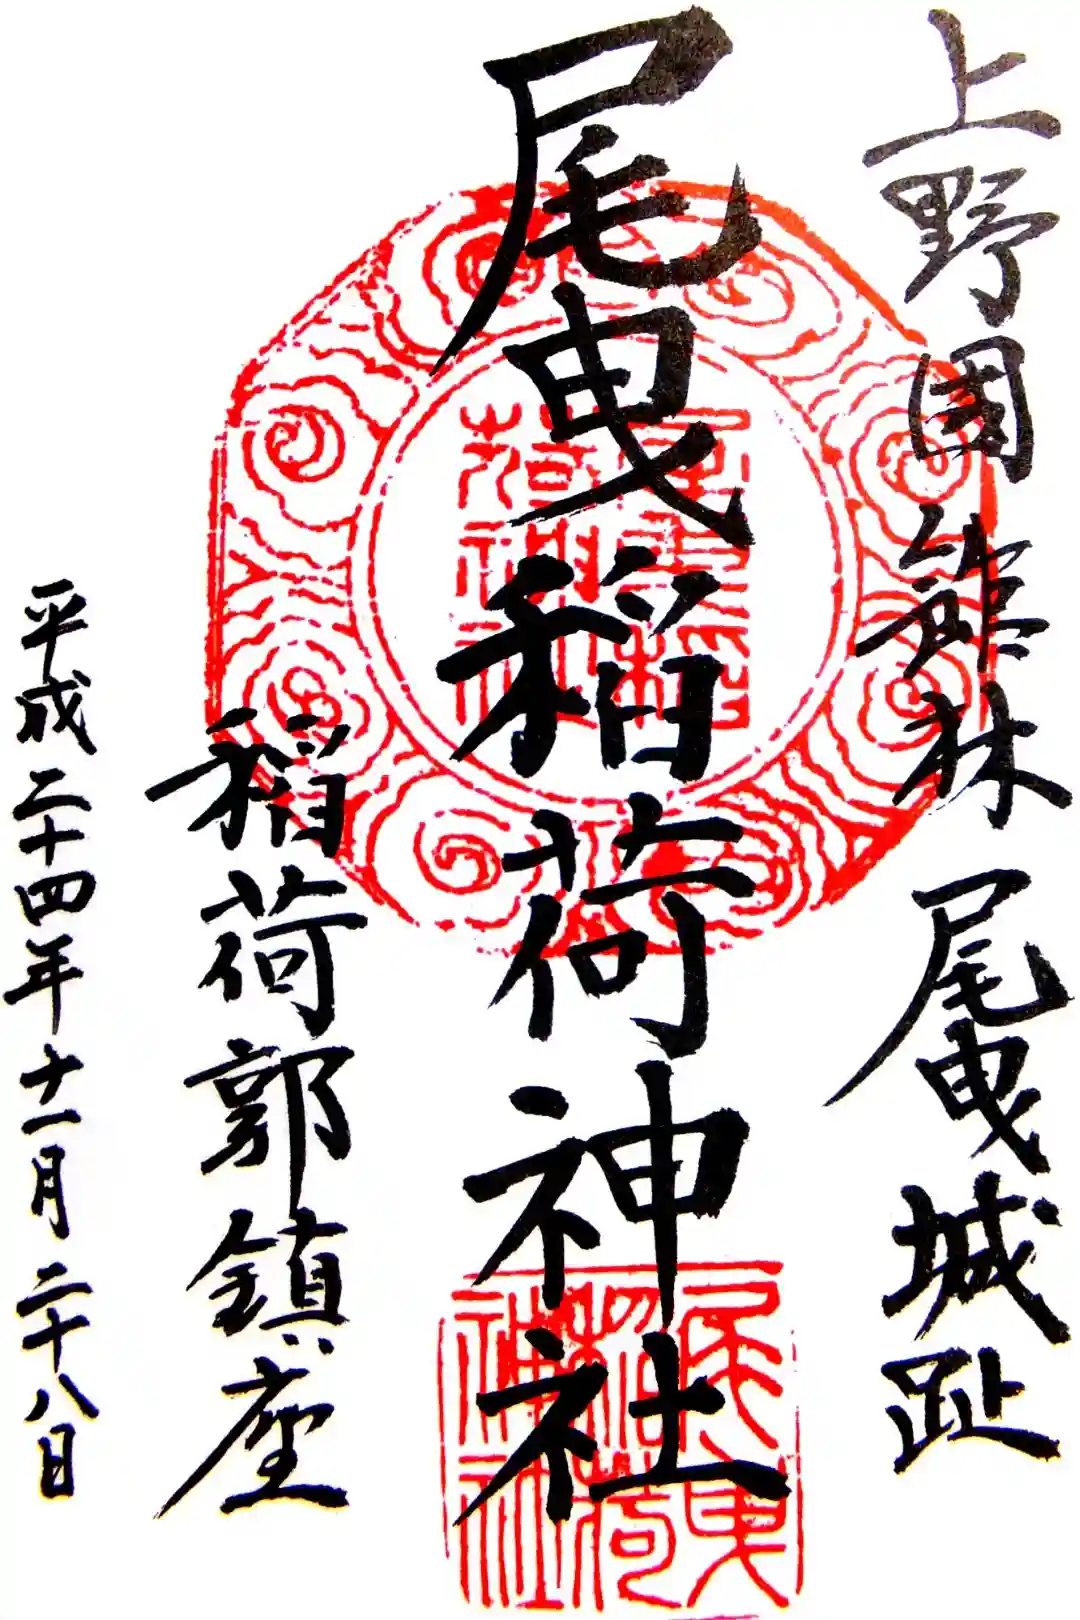 上野国館林尾曳城趾
尾曳稲荷神社
稲荷郭鎮座
平成二十四年十一月二十八日
尾曳稲荷神社
尾曳稲荷神社